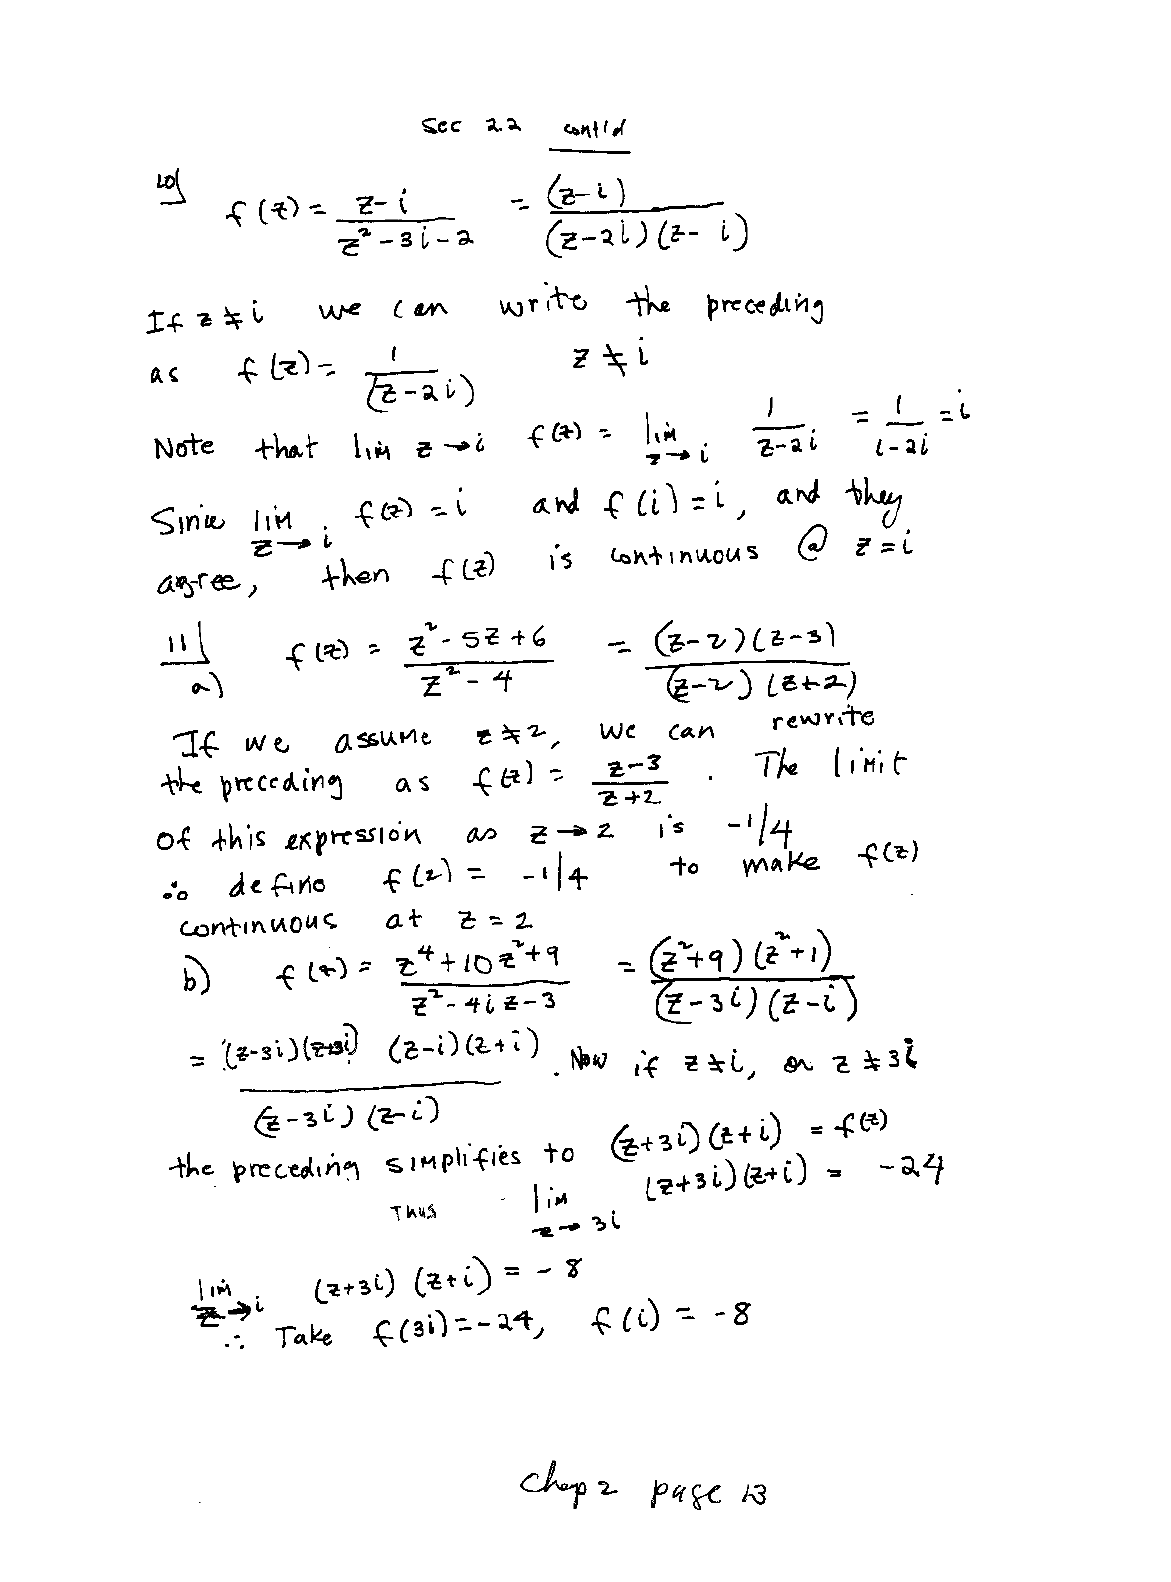 Sec 2.2 cont'd
10) f(z) = (z-i)/(z²-3i-2) = (z-i)/((z-2i)(z-i))
If z≠i we can write the preceding
as f(z) = 1/(z-2i) z≠i
Note that lim z→i f(z) = lim z→i 1/(z-2i) = 1/(i-2i) = i
Since lim z→i f(z) = i and f(i) = i, and they
agree, then f(z) is continuous @ z=i
11) a) f(z) = (z²-5z+6)/(z²-4) = ((z-2)(z-3))/((z-2)(z+2))
If we assume z≠2, we can rewrite
the preceding as f(z) = (z-3)/(z+2). The limit
of this expression as z→2 is -1/4
∴ define f(2) = -1/4 to make f(z)
continuous at z=2
b) f(z) = (z⁴+10z²+9)/(z²-4iz-3) = ((z²+9)(z²+1))/((z-3i)(z-i))
= ((z-3i)(z+3i)(z-i)(z+i))/((z-3i)(z-i)). Now if z≠i, or z≠3i
the preceding simplifies to (z+3i)(z+i) = f(z)
Thus lim z→3i (z+3i)(z+i) = -24
lim z→i (z+3i)(z+i) = -8
∴ Take f(3i) = -24, f(i) = -8
Chap 2 page 13